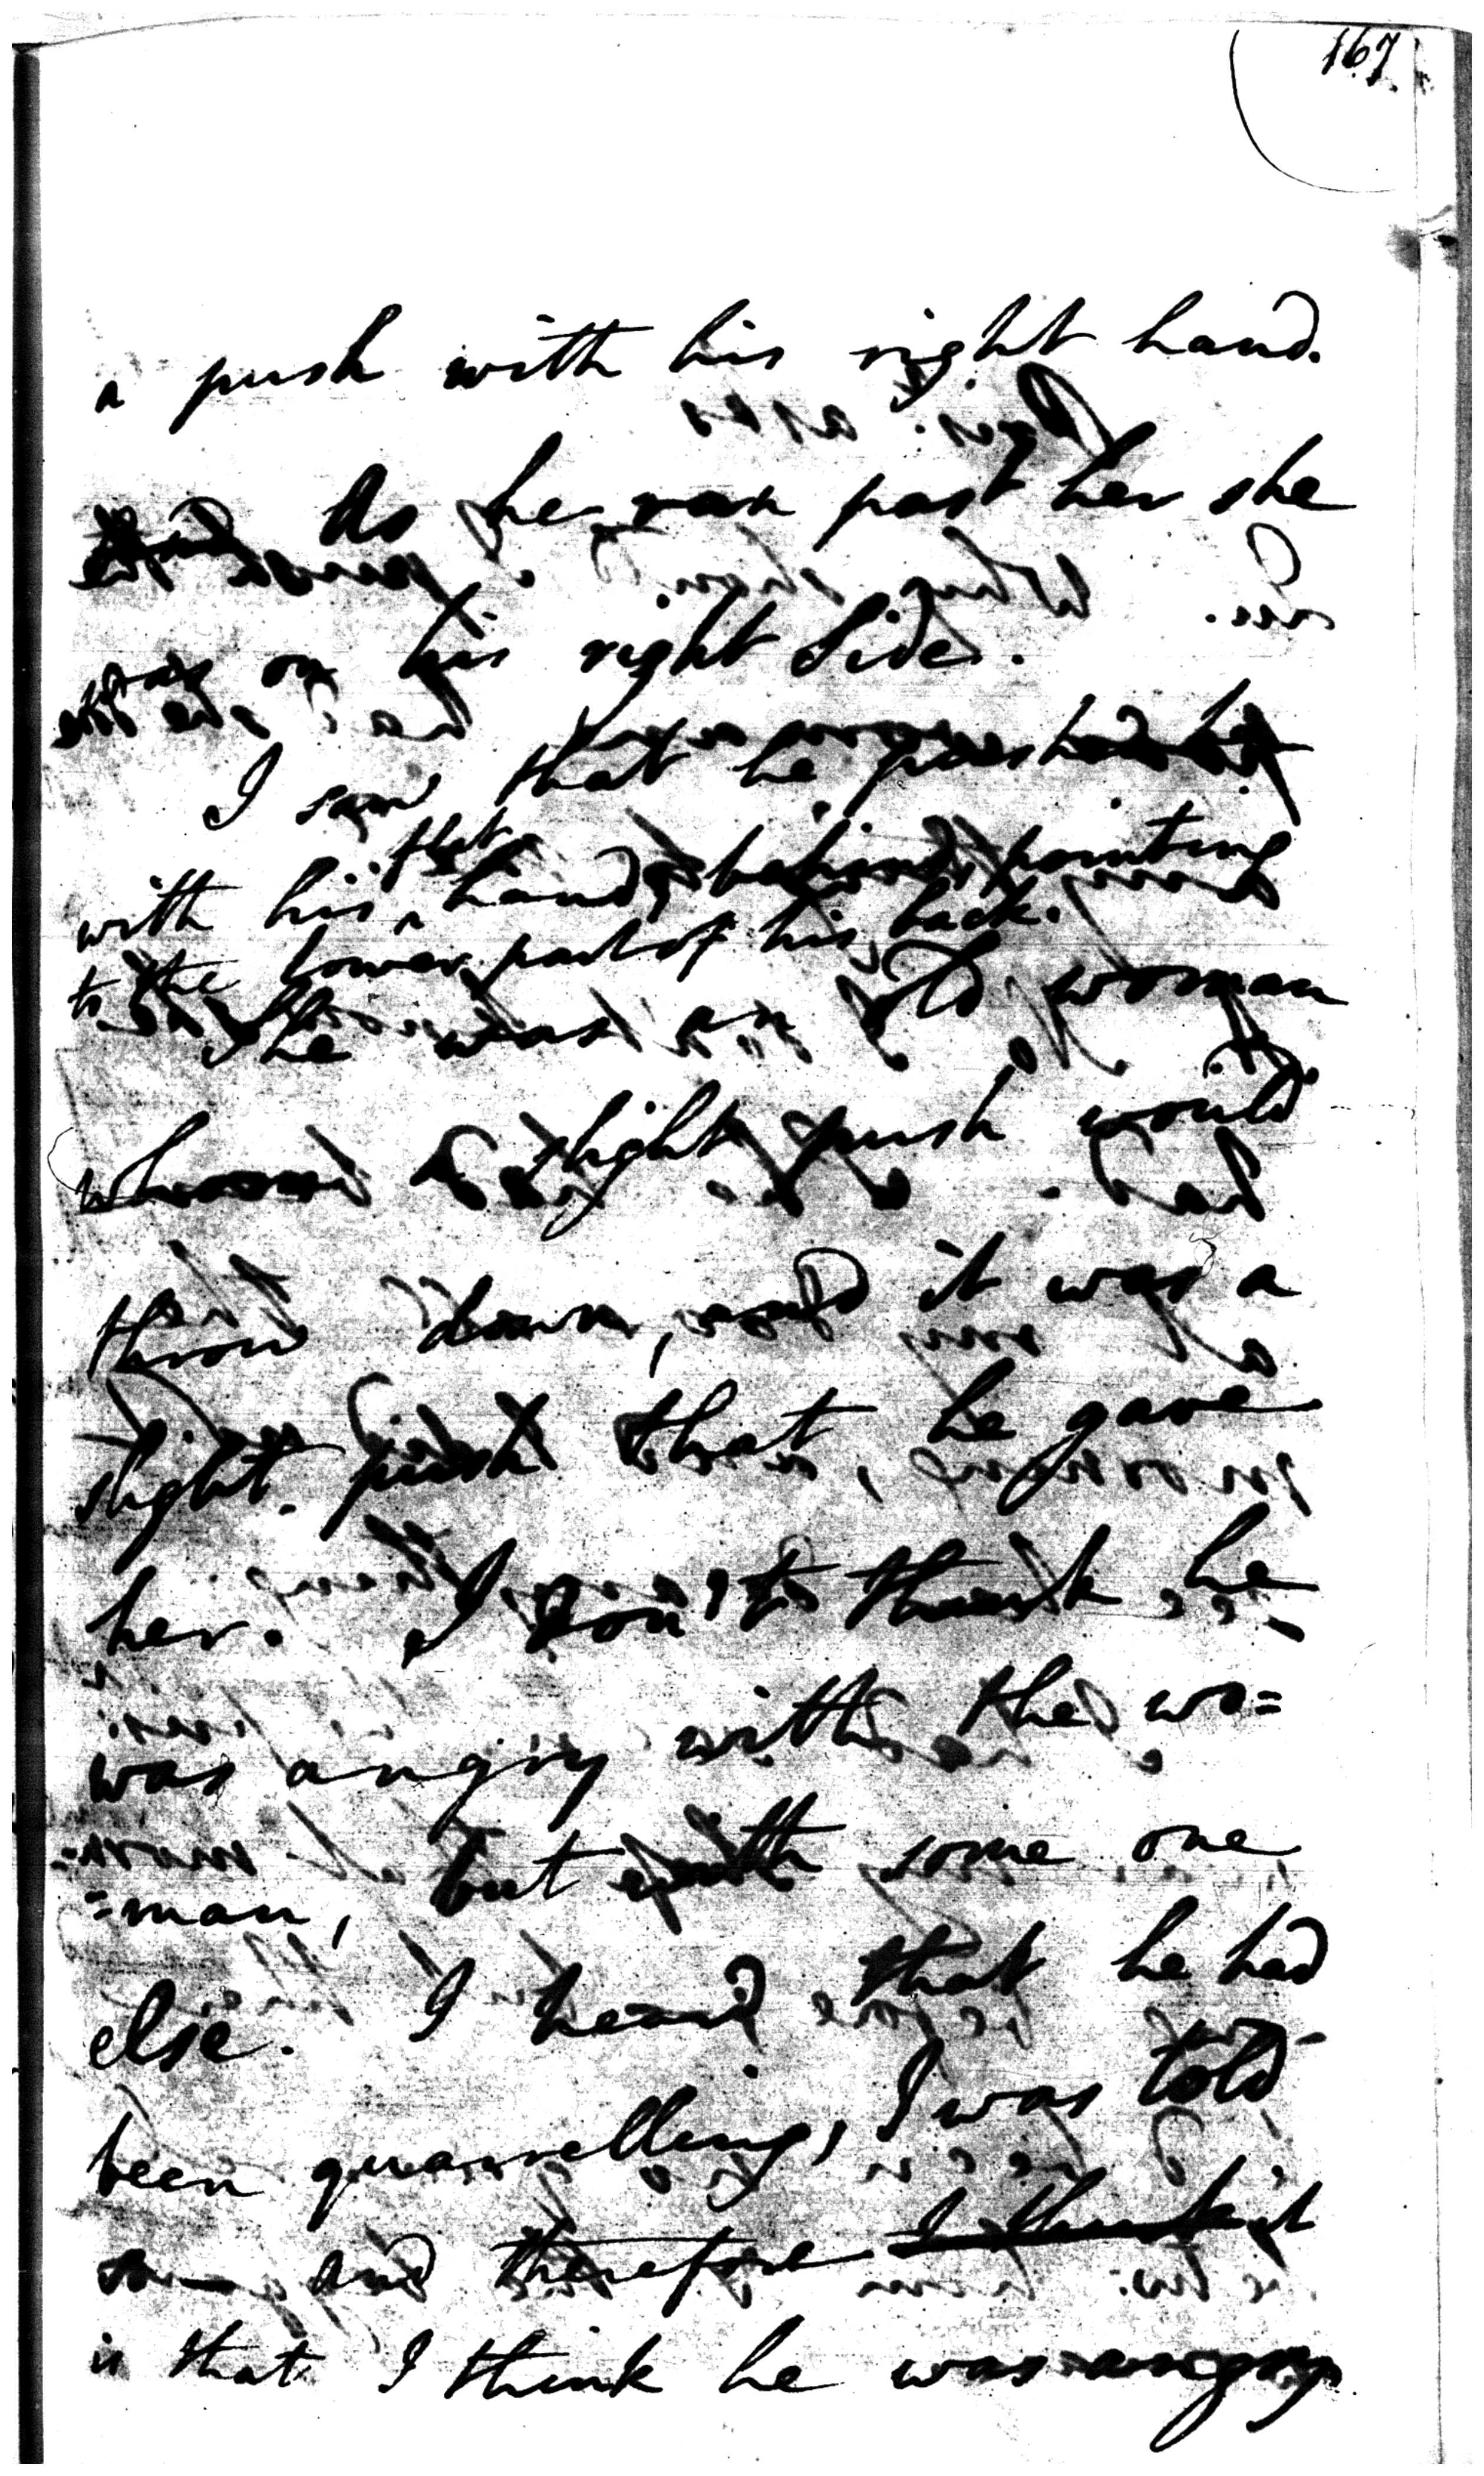 167
a push with his right hand.
As he ran past her she
was on his right side.
I saw that he pushed her
with his flat hand, behind, pointing
to the lower part of his back.
She was an old woman
whom a slight push would
throw down, and it was a
slight push that he gave
her. I don't think he
was angry with the wo=
=man, but with some one
else. I heard that he had
been quarrelling, I was told
and therefore I think it
is that I think he was angry